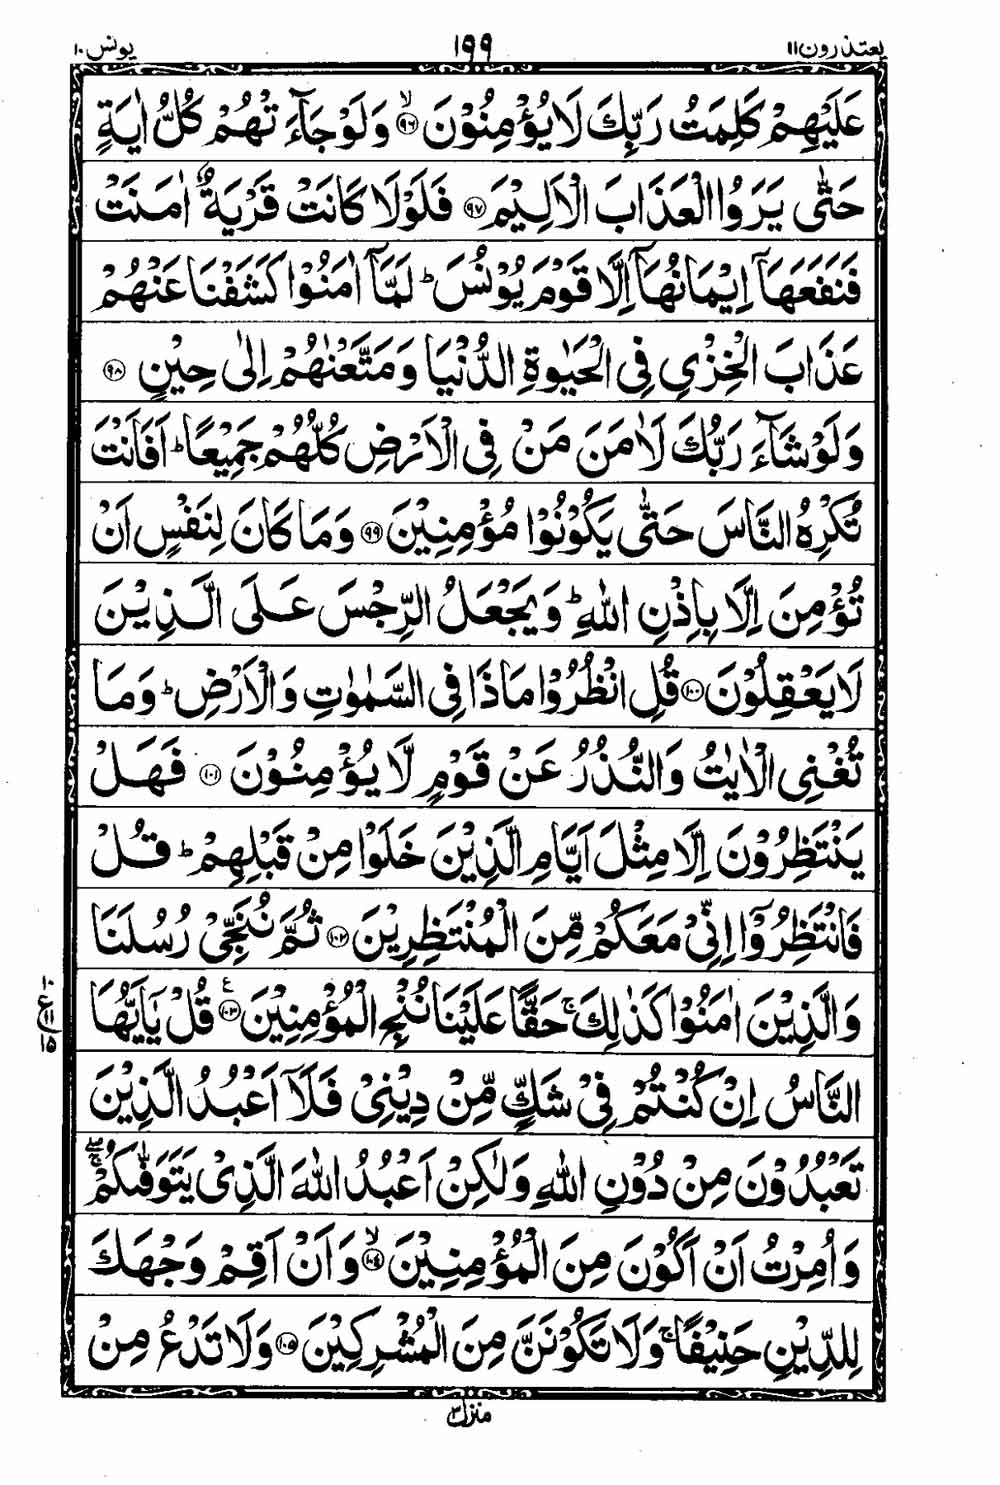 یعتذرون۱۱ ۱۹۹ یونس۱۰
عَلَیْهِمْ كَلِمَتُ رَبِّكَ لَا یُؤْمِنُوْنَ ۙ﴿۹۶﴾ وَلَوْ جَآءَ تْهُمْ كُلُّ اٰیَةٍ
حَتّٰی یَرَوُا الْعَذَابَ الْاَلِیْمَ ﴿۹۷﴾ فَلَوْلَا كَانَتْ قَرْیَةٌ اٰمَنَتْ
فَنَفَعَهَاۤ اِیْمَانُهَاۤ اِلَّا قَوْمَ یُوْنُسَ ؕ لَمَّاۤ اٰمَنُوْا كَشَفْنَا عَنْهُمْ
عَذَابَ الْخِزْیِ فِی الْحَیٰوةِ الدُّنْیَا وَمَتَّعْنٰهُمْ اِلٰی حِیْنٍ ﴿۹۸﴾
وَلَوْ شَآءَ رَبُّكَ لَاٰمَنَ مَنْ فِی الْاَرْضِ كُلُّهُمْ جَمِیْعًا ؕ اَفَاَنْتَ
تُكْرِهُ النَّاسَ حَتّٰی یَكُوْنُوْا مُؤْمِنِیْنَ ﴿۹۹﴾ وَمَا كَانَ لِنَفْسٍ اَنْ
تُؤْمِنَ اِلَّا بِاِذْنِ اللّٰهِ ؕ وَیَجْعَلُ الرِّجْسَ عَلَی الَّذِیْنَ
لَا یَعْقِلُوْنَ ﴿۱۰۰﴾ قُلِ انْظُرُوْا مَاذَا فِی السَّمٰوٰتِ وَالْاَرْضِ ؕ وَمَا
تُغْنِی الْاٰیٰتُ وَالنُّذُرُ عَنْ قَوْمٍ لَّا یُؤْمِنُوْنَ ﴿۱۰۱﴾ فَهَلْ
یَنْتَظِرُوْنَ اِلَّا مِثْلَ اَیَّامِ الَّذِیْنَ خَلَوْا مِنْ قَبْلِهِمْ ؕ قُلْ
فَانْتَظِرُوْۤا اِنِّیْ مَعَكُمْ مِّنَ الْمُنْتَظِرِیْنَ ﴿۱۰۲﴾ ثُمَّ نُنَجِّیْ رُسُلَنَا
وَالَّذِیْنَ اٰمَنُوْا كَذٰلِكَ ۚ حَقًّا عَلَیْنَا نُنْجِ الْمُؤْمِنِیْنَ ﴿۱۰۳﴾ ع قُلْ یٰۤاَیُّهَا
۱۰ ع ۱۱ ۱۵
النَّاسُ اِنْ كُنْتُمْ فِیْ شَكٍّ مِّنْ دِیْنِیْ فَلَاۤ اَعْبُدُ الَّذِیْنَ
تَعْبُدُوْنَ مِنْ دُوْنِ اللّٰهِ وَلٰكِنْ اَعْبُدُ اللّٰهَ الَّذِیْ یَتَوَفّٰىكُمْ ۖۚ
وَاُمِرْتُ اَنْ اَكُوْنَ مِنَ الْمُؤْمِنِیْنَ ۙ﴿۱۰۴﴾ وَاَنْ اَقِمْ وَجْهَكَ
لِلدِّیْنِ حَنِیْفًا ۚ وَلَا تَكُوْنَنَّ مِنَ الْمُشْرِكِیْنَ ﴿۱۰۵﴾ وَلَا تَدْعُ مِنْ
منزل۳